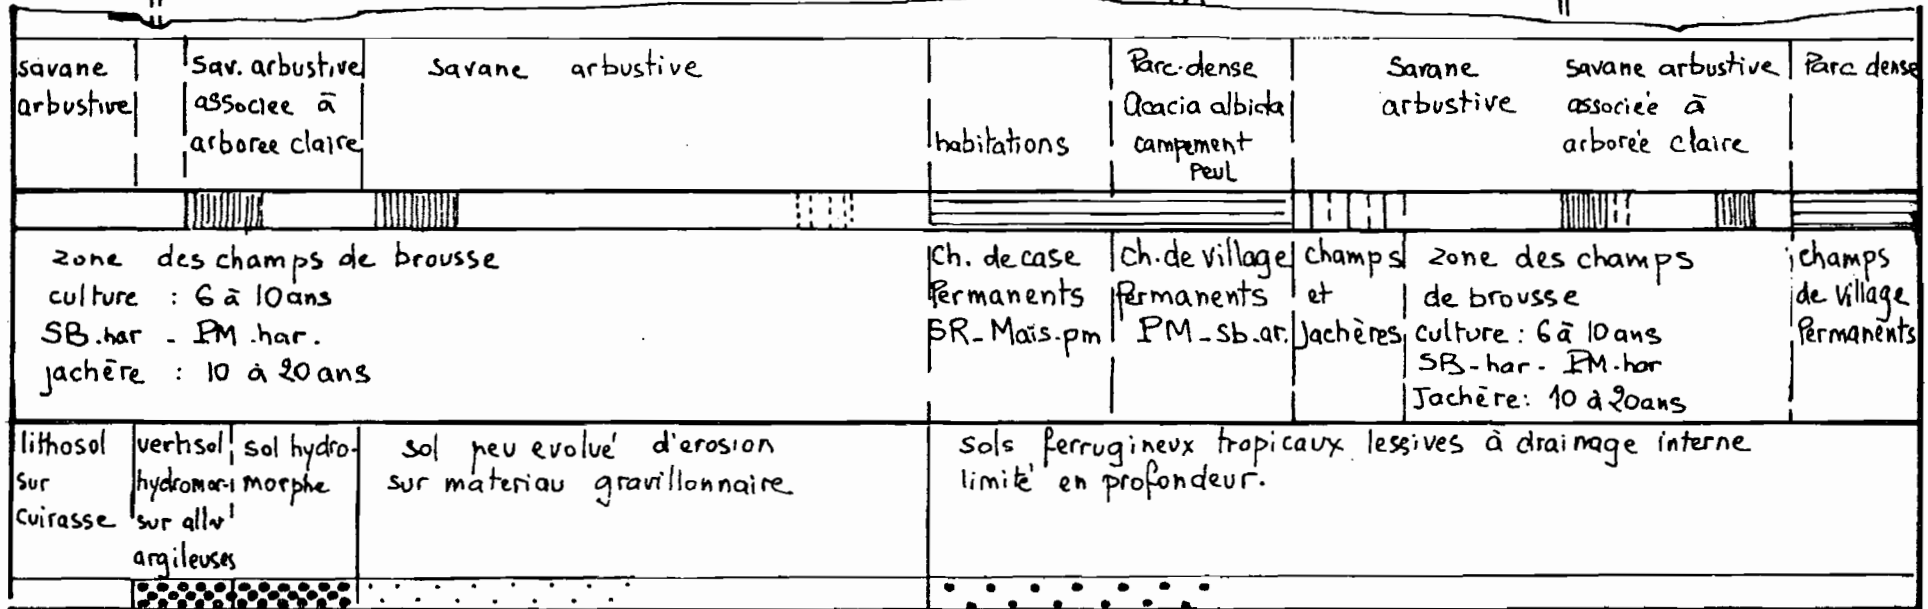 savane
arbustive
Sav. arbustive
associee à
arboree claire
Savane arbustive
habitations
Parc dense
Acacia albida
campement
Peul
Savane
arbustive
savane arbustive
associée à
arborée claire
Parc dense
zone des champs de brousse
culture : 6 à 10 ans
SB.har - PM.har.
jachère : 10 à 20 ans
Ch. de case
Permanents
SR_Maïs.pm
Ch. de village
Permanents
PM_Sb.ar.
champs
et
Jachères
zone des champs
de brousse
culture : 6 à 10 ans
SB-har - PM.har
Jachère : 10 à 20 ans
champs
de village
Permanents
lithosol
sur
cuirasse
vertisol
hydromor
sur alluv
argileuses
sol hydro-
morphe
sol peu evolué d'erosion
sur materiau gravillonnaire
sols ferrugineux tropicaux lessives à drainage interne
limité en profondeur.